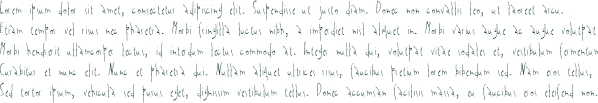 Lorem ipsum dolor sit amet, consectetur adipiscing elit. Suspendisse ut justo diam. Donec non convallis leo, ut laoreet arcu.
Etiam tempor vel risus nec pharetra. Morbi fringilla luctus nibh, a imperdiet nisl aliquet in. Morbi varius augue ac augue volutpat
Morbi hendrerit ullamcorper lectus, id interdum lectus commodo at. Integer nulla dui, volutpat vitae sodales et, vestibulum fermentum
Curabitur et nunc elit. Nunc et pharetra dui. Nullam aliquet ultrices risus, faucibus pretium lorem bibendum sed. Nam eros tellus,
Sed tortor ipsum, vehicula sed purus eget, dignissim vestibulum tellus. Donec accumsan facilisis massa, eu faucibus eros eleifend non.